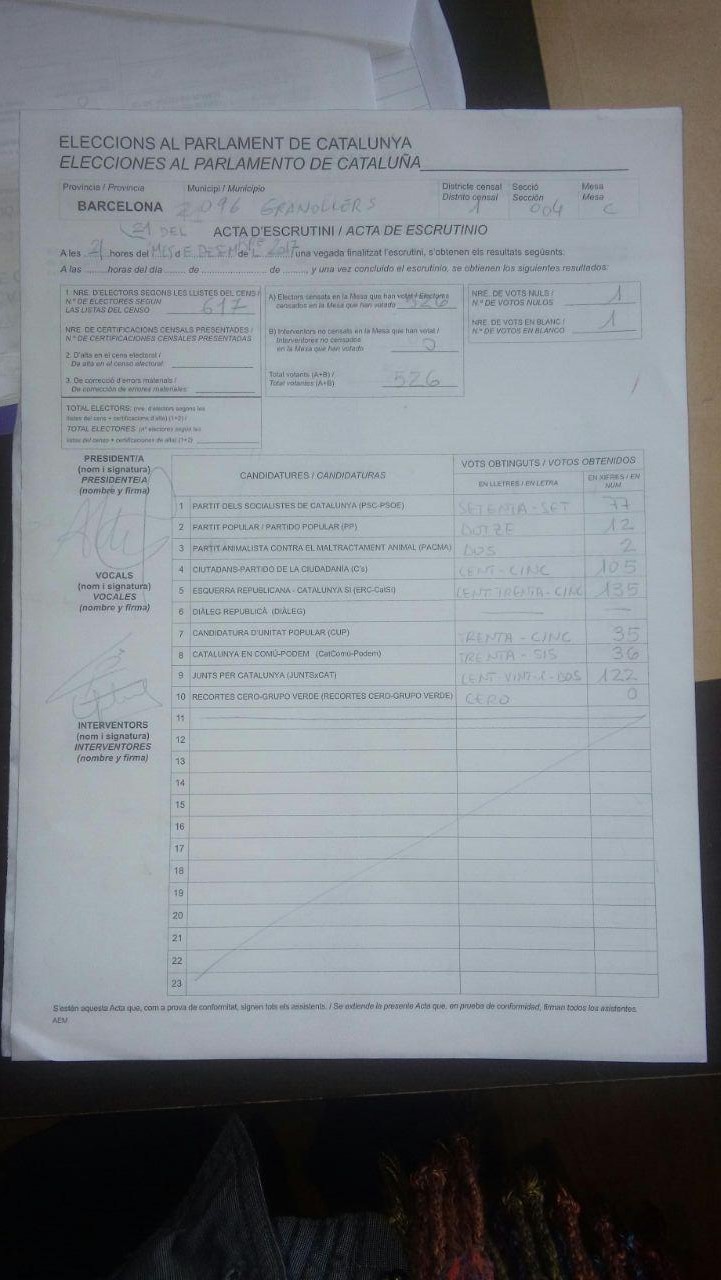 ELECCIONS AL PARLAMENT DE CATALUNYA
ELECCIONES AL PARLAMENTO DE CATALUÑA
Provincia / Provincia Municipi / Municipio Districte censal Secció Mesa
Distrito censal Sección Mesa
BARCELONA 2096 GRANOLLERS 1 004 C
21 DEL ACTA D'ESCRUTINI / ACTA DE ESCRUTINIO
A les 21 hores del MES d E DESEMBRE de L 2017 una vegada finalitzat l'escrutini, s'obtenen els resultats següents:
A las ....... horas del día ...... de ...................... de ......., y una vez concluido el escrutinio, se obtienen los siguientes resultados:
1. NRE. D'ELECTORS SEGONS LES LLISTES DEL CENS /
N.º DE ELECTORES SEGÚN
LAS LISTAS DEL CENSO 617
NRE. DE CERTIFICACIONS CENSALS PRESENTADES /
N.º DE CERTIFICACIONES CENSALES PRESENTADAS
2. D'alta en el cens electoral /
De alta en el censo electoral:
3. De correcció d'errors materials /
De corrección de errores materiales:
TOTAL ELECTORS: (nre. d'electors segons les
llistes del cens + certificacions d'alta) (1+2) /
TOTAL ELECTORES: (nº electores según las
listas del censo + certificaciones de alta) (1+2)
A) Electors censats en la Mesa que han votat / Electores
censados en la Mesa que han votado 526
B) Interventors no censats en la Mesa que han votat /
Interventores no censados
en la Mesa que han votado 0
Total votants (A+B) /
Total votantes (A+B) 526
NRE. DE VOTS NULS /
N.º DE VOTOS NULOS 1
NRE. DE VOTS EN BLANC /
N.º DE VOTOS EN BLANCO 1
PRESIDENT/A
(nom i signatura)
PRESIDENTE/A
(nombre y firma)
VOCALS
(nom i signatura)
VOCALES
(nombre y firma)
INTERVENTORS
(nom i signatura)
INTERVENTORES
(nombre y firma)
CANDIDATURES / CANDIDATURAS VOTS OBTINGUTS / VOTOS OBTENIDOS
EN LLETRES / EN LETRA EN XIFRES / EN NÚM
1 PARTIT DELS SOCIALISTES DE CATALUNYA (PSC-PSOE) SETENTA-SET 77
2 PARTIT POPULAR / PARTIDO POPULAR (PP) DOTZE 12
3 PARTIT ANIMALISTA CONTRA EL MALTRACTAMENT ANIMAL (PACMA) DOS 2
4 CIUTADANS-PARTIDO DE LA CIUDADANÍA (C's) CENT-CINC 105
5 ESQUERRA REPUBLICANA - CATALUNYA SÍ (ERC-CatSí) CENT TRENTA-CINC 135
6 DIÀLEG REPUBLICÀ (DIÀLEG) — —
7 CANDIDATURA D'UNITAT POPULAR (CUP) TRENTA-CINC 35
8 CATALUNYA EN COMÚ-PODEM (CatComú-Podem) TRENTA-SIS 36
9 JUNTS PER CATALUNYA (JUNTSxCAT) CENT VINT-I-DOS 122
10 RECORTES CERO-GRUPO VERDE (RECORTES CERO-GRUPO VERDE) CERO 0
11
12
13
14
15
16
17
18
19
20
21
22
23
S'estén aquesta Acta que, com a prova de conformitat, signen tots els assistents. / Se extiende la presente Acta que, en prueba de conformidad, firman todos los asistentes.
AEM